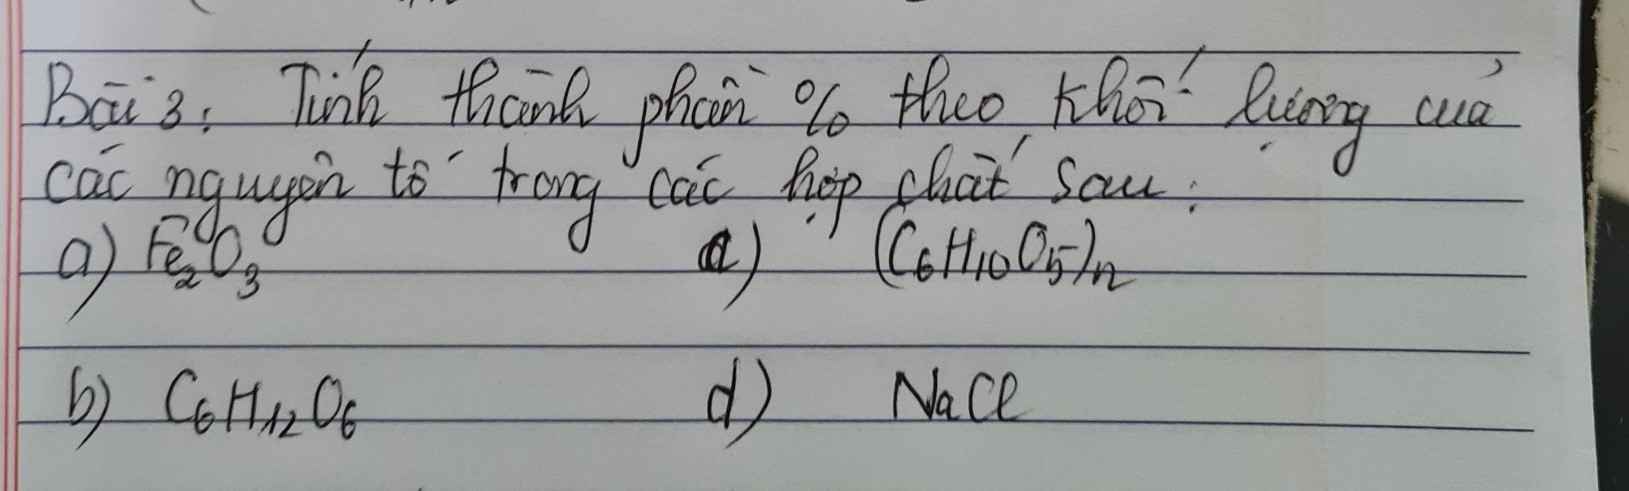 Bài 3: Tính thành phần % theo khối lượng của
các nguyên tố trong các hợp chất sau:
a) Fe₂O₃ c) (C₆H₁₀O₅)n
b) C₆H₁₂O₆ d) NaCl